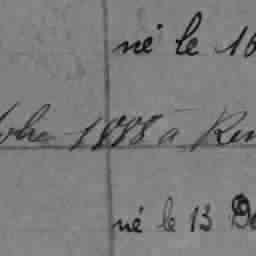 né le 16
1898 à Ren
né le 13 De